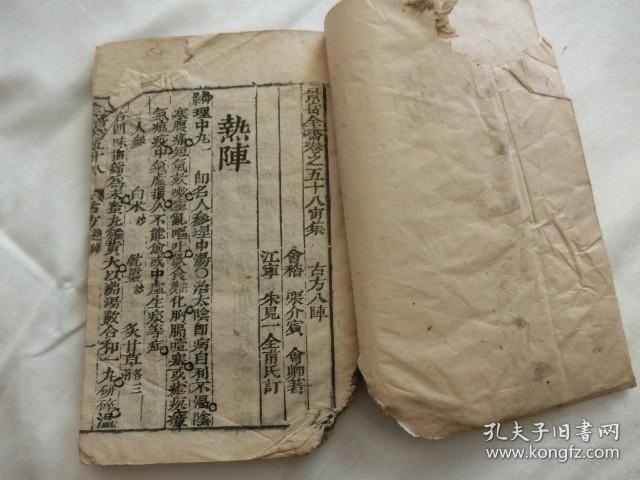 景岳全書卷之五十八宙集 古方八陣
會稽 張介賓 會卿著
江寧 朱見一 全甫氏訂
熱陣
理中丸 即名人參理中湯○治太陰即病自利不渴陰
寒腹痛短氣欬嗽霍亂嘔吐飲食難化胸膈噎塞或瘧疾瘴
氣瘟疫中氣虛損久不能愈或中虛生痰等症
人參 白朮炒 乾薑炒 炙甘草各三
右四味搗篩為末蜜丸雞黃大以沸湯數合和一丸研碎溫
孔夫子旧书网
www.kongfz.com